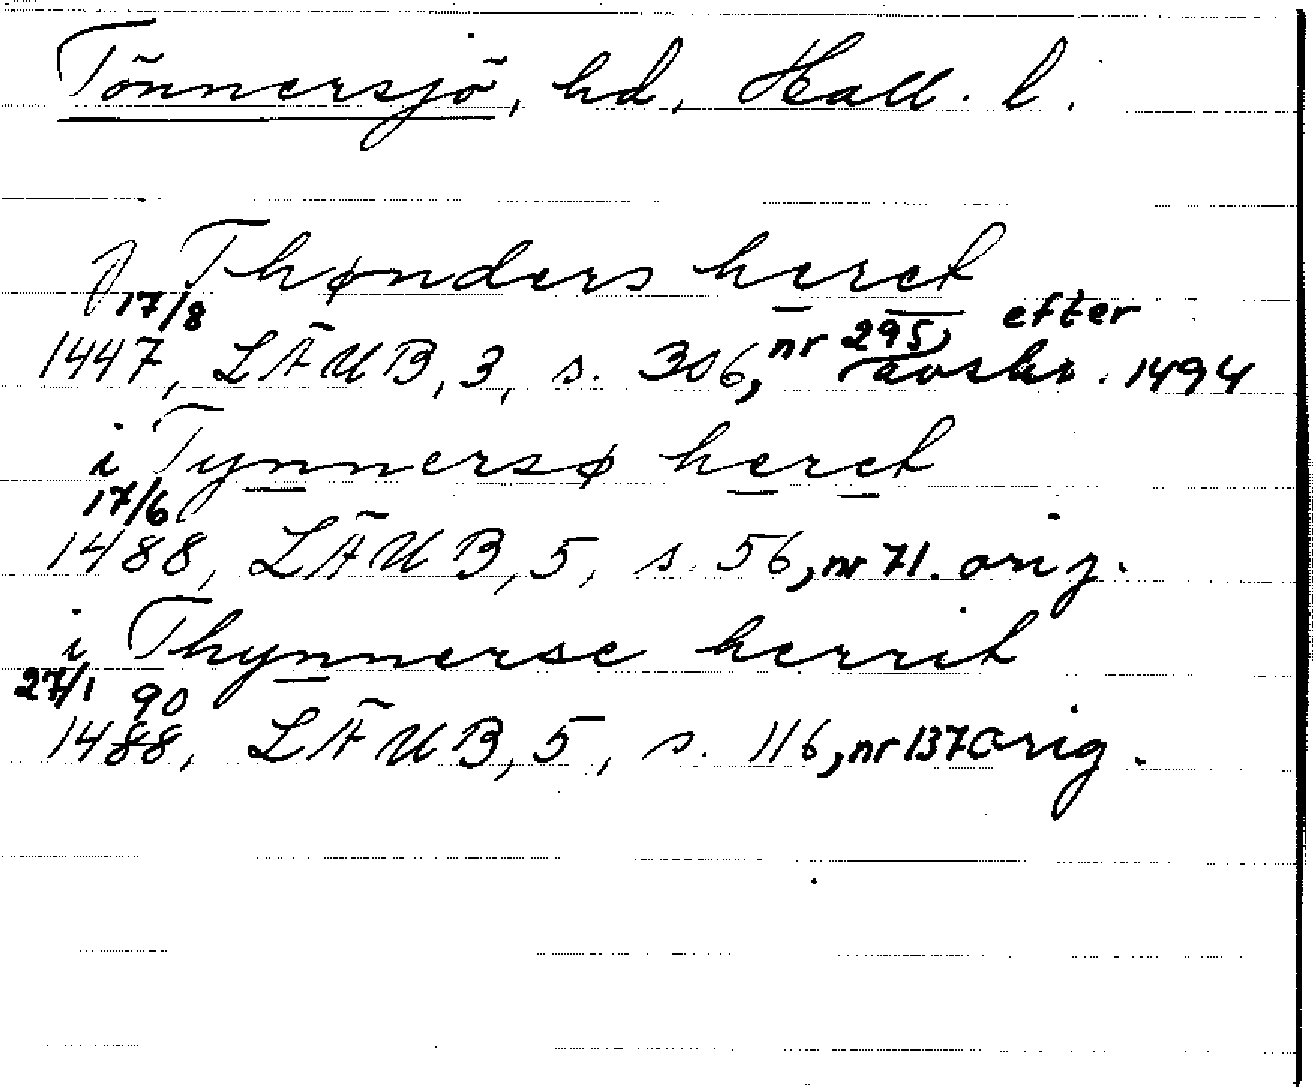 Tönnersjö, hd, Hall. l.
J Thønders heret
17/8
1447, LÄUB, 3, s. 306, nr 295, efter avskr. 1494
i Tynnersø heret
17/6
1488, LÄUB, 5, s. 56, nr 71. orig.
i Thynnerse herrit
27/1 90
1488, LÄUB, 5, s. 116, nr 137 orig.